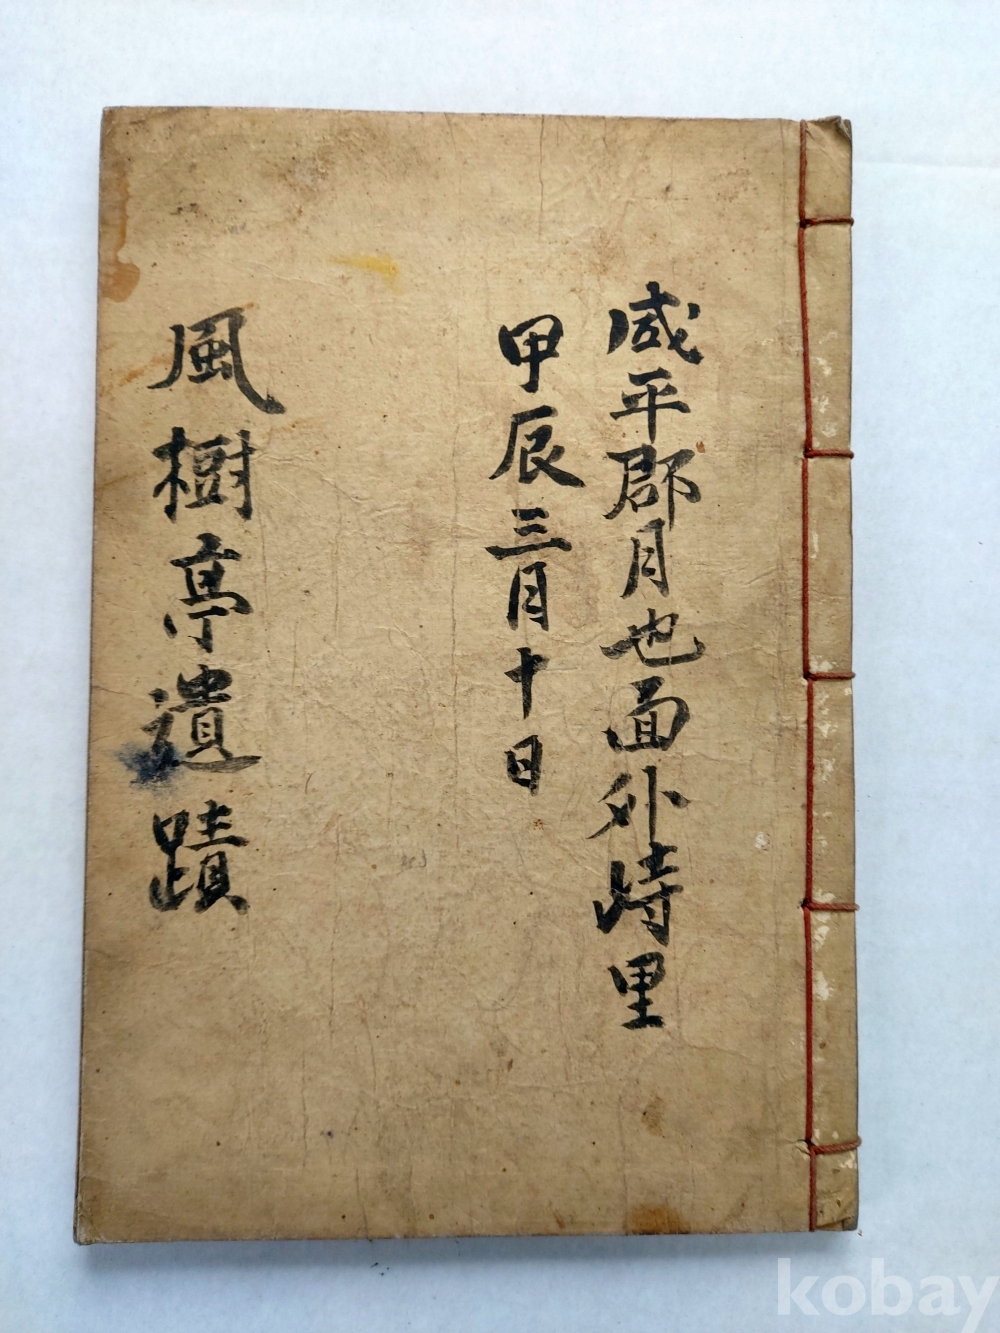 咸平郡月也面外峙里
甲辰三月十日
風樹亭遺蹟
kobay